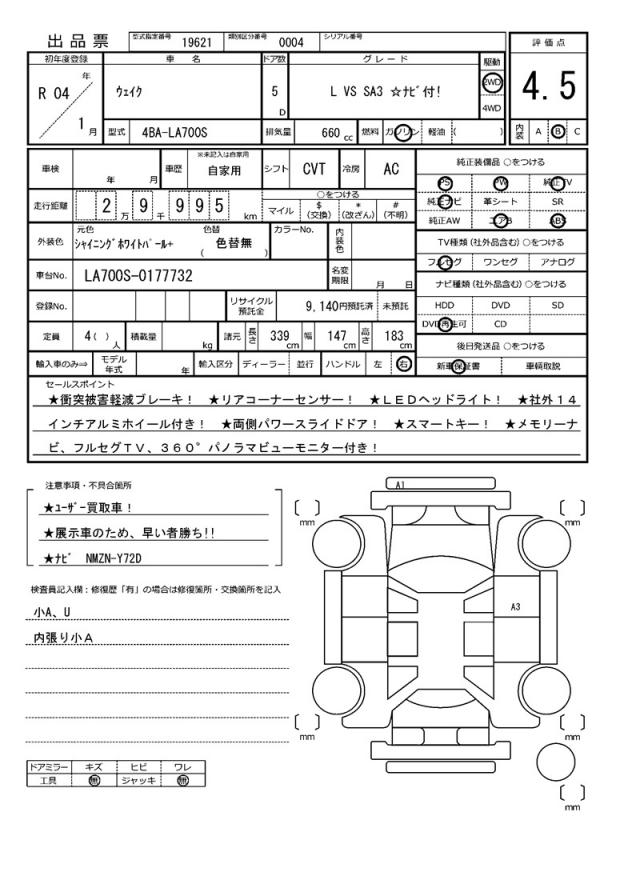 出品票 型式指定番号 19621 類別区分番号 0004 シリアル番号
初年度登録 車名 ドア数 グレード 駆動 評価点
R 04 年 1 月 ウェイク 5 D L VS SA3 ☆ナビ付! 2WD 4WD 4.5
型式 4BA-LA700S 排気量 660 cc 燃料 ガソリン 軽油 ( ) 内装 A B C
車検 年 月 車歴 ※未記入は自家用 自家用 シフト CVT 冷房 AC
走行距離 2 万 9 千 9 9 5 km
○をつける
マイル $(交換) *(改ざん) #(不明)
外装色 元色 シャイニングホワイトパール+ 色替 ( 色替無 ) カラーNo. 内装色
車台No. LA700S-0177732 名変期限 月 日
登録No. リサイクル預託金 9,140円預託済 未預託
定員 4( )人 積載量 kg 諸元 長さ 339 cm 幅 147 cm 高さ 183 cm
輸入車のみ⇒ モデル年式 年 輸入区分 ディーラー 並行 ハンドル 左 右
純正装備品 ○をつける
PS PW 純正TV
純正ナビ 革シート SR
純正AW エアB ABS
TV種類(社外品含む)○をつける
フルセグ ワンセグ アナログ
ナビ種類(社外品含む)○をつける
HDD DVD SD
DVD再生可 CD
後日発送品 ○をつける
新車保証書 車輌取説
セールスポイント
★衝突被害軽減ブレーキ! ★リアコーナーセンサー! ★LEDヘッドライト! ★社外14
インチアルミホイール付き! ★両側パワースライドドア! ★スマートキー! ★メモリーナ
ビ、フルセグTV、360°パノラマビューモニター付き!
注意事項・不具合箇所
★ユーザー買取車!
★展示車のため、早い者勝ち!!
★ナビ NMZN-Y72D
検査員記入欄:修復歴「有」の場合は修復箇所・交換箇所を記入
小A、U
内張り小A
ドアミラー キズ ヒビ ワレ
工具 無 ジャッキ 無
A1
A3
[ ] mm
[ ] mm
[ ] mm
[ ] mm
[ ] mm